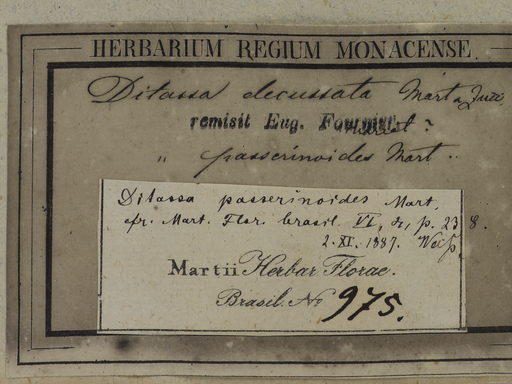 HERBARIUM REGIUM MONACENSE.
Ditassa decussata Mart
remisit Eug. Fournier.
" passerinoides Mart.
Ditassa passerinoides Mart.
cfr. Mart. Flor. brasil. VI, p. 238.
2. XI. 1887.
Martii Herbar. Florae.
Brasil. No 975.